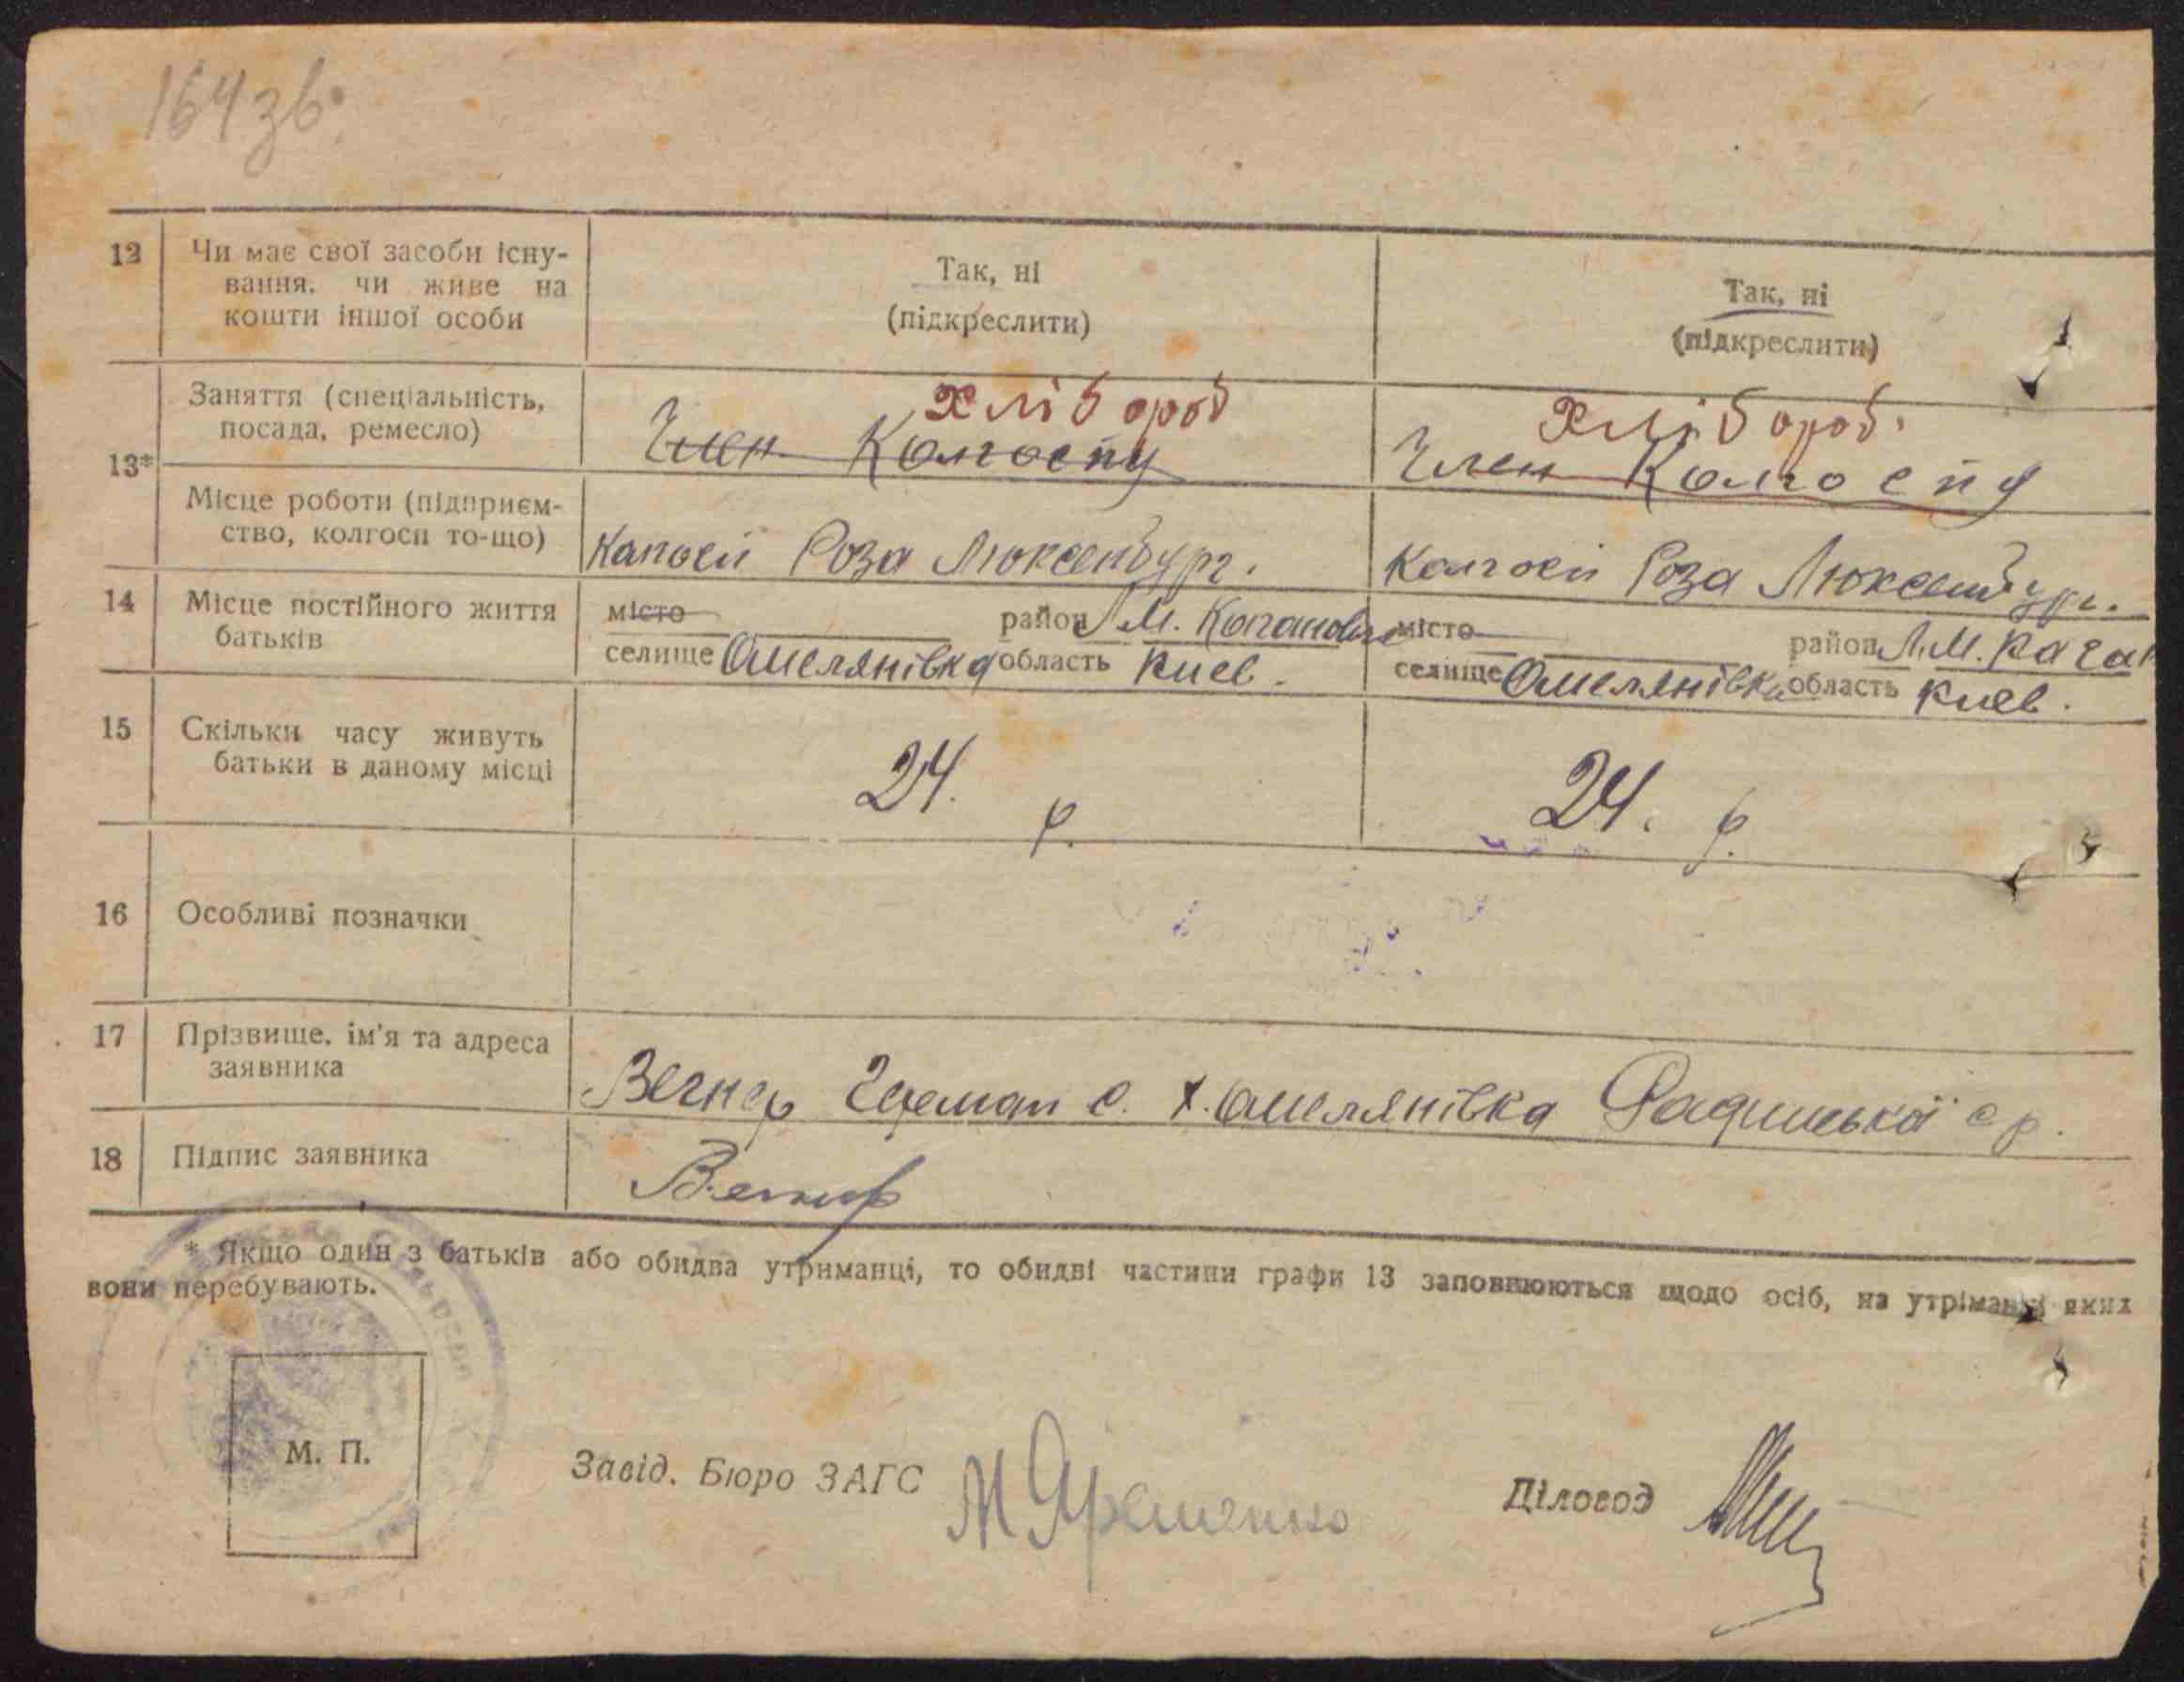 164 зв.
12 Чи має свої засоби існу- Так, ні Так, ні
вання, чи живе на (підкреслити) (підкреслити)
кошти іншої особи
Заняття (спеціальність, хлібороб хлібороб.
посада, ремесло) Член Колгоспу Член Колгоспу
13*
Місце роботи (підприєм-
ство, колгосп то-що) Колгосп Роза Люксембург. Колгосп Роза Люксембург.
14 Місце постійного життя місто район Л.М. Коганович місто район Л.М. Каган
батьків селище Омелянівка область Киев. селище Омелянівка область Киев.
15 Скільки часу живуть 24. р. 24. р.
батьки в даному місці
16 Особливі позначки
17 Прізвище, ім'я та адреса
заявника Вегнер Герман с. х. Омелянівка с р.
18 Підпис заявника Вегнер
* Якщо один з батьків або обидва утриманці, то обидві частини графи 13 заповнюються щодо осіб, на утріманні яких
вони перебувають.
М. П. Завід. Бюро ЗАГС М Яременко Діловод